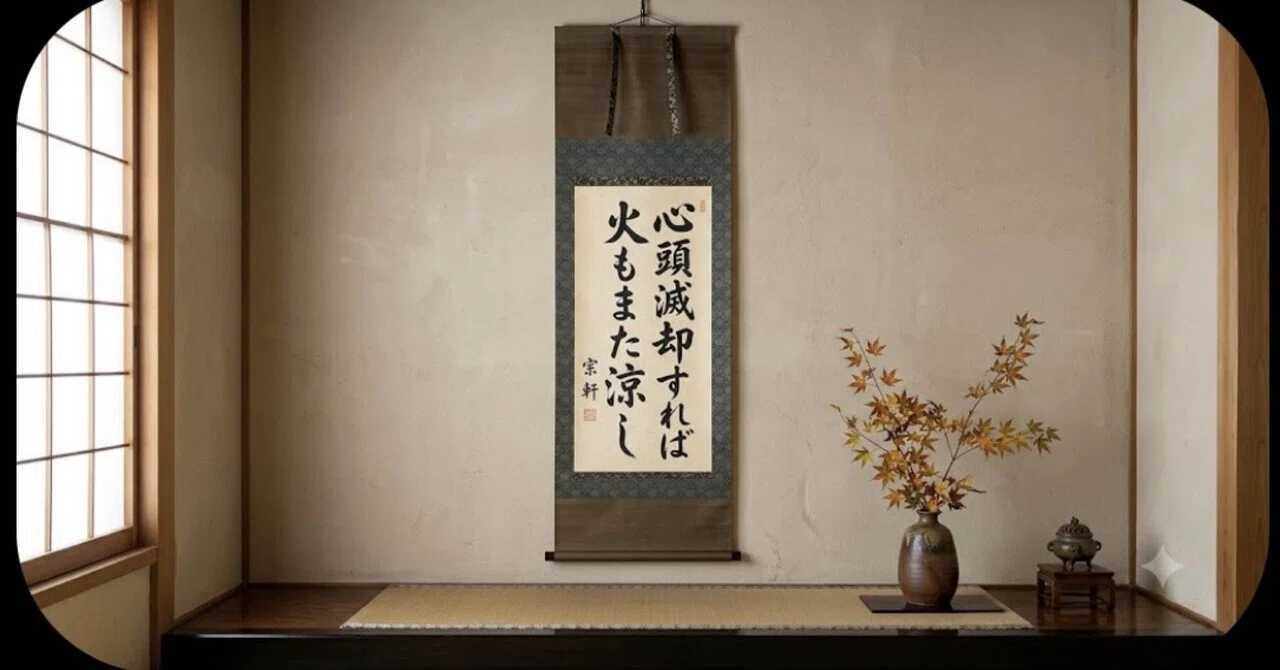 心頭滅却すれば
火もまた涼し
宗軒